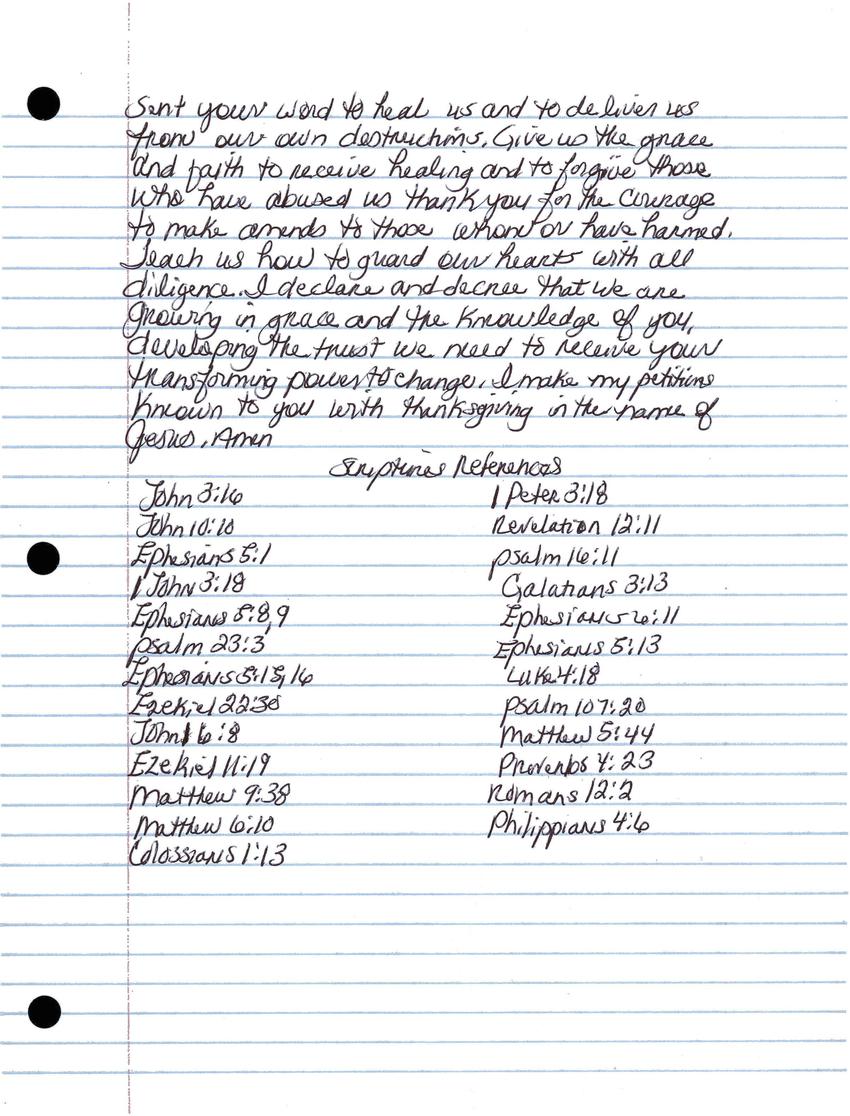 Sent your word to heal us and to deliver us
from our own destructions. Give us the grace
and faith to receive healing and to forgive those
who have abused us thank you for the courage
to make amends to those whom or have harmed.
Teach us how to guard our hearts with all
diligence. I declare and decree that we are
growing in grace and the knowledge of you,
developing the trust we need to receive your
transforming power to change. I make my petitions
known to you with thanksgiving in the name of
Jesus, Amen
Scriptures References
John 3:16
John 10:10
Ephesians 5:1
1 John 3:18
Ephesians 5:8,9
psalm 23:3
Ephesians 5:15,16
Ezekiel 22:30
John 16:8
Ezekiel 11:19
Matthew 9:38
Matthew 6:10
Colossians 1:13
1 Peter 3:18
Revelation 12:11
psalm 16:11
Galatians 3:13
Ephesians 6:11
Ephesians 5:13
Luke 4:18
psalm 107:20
Matthew 5:44
Proverbs 4:23
Romans 12:2
Philippians 4:6